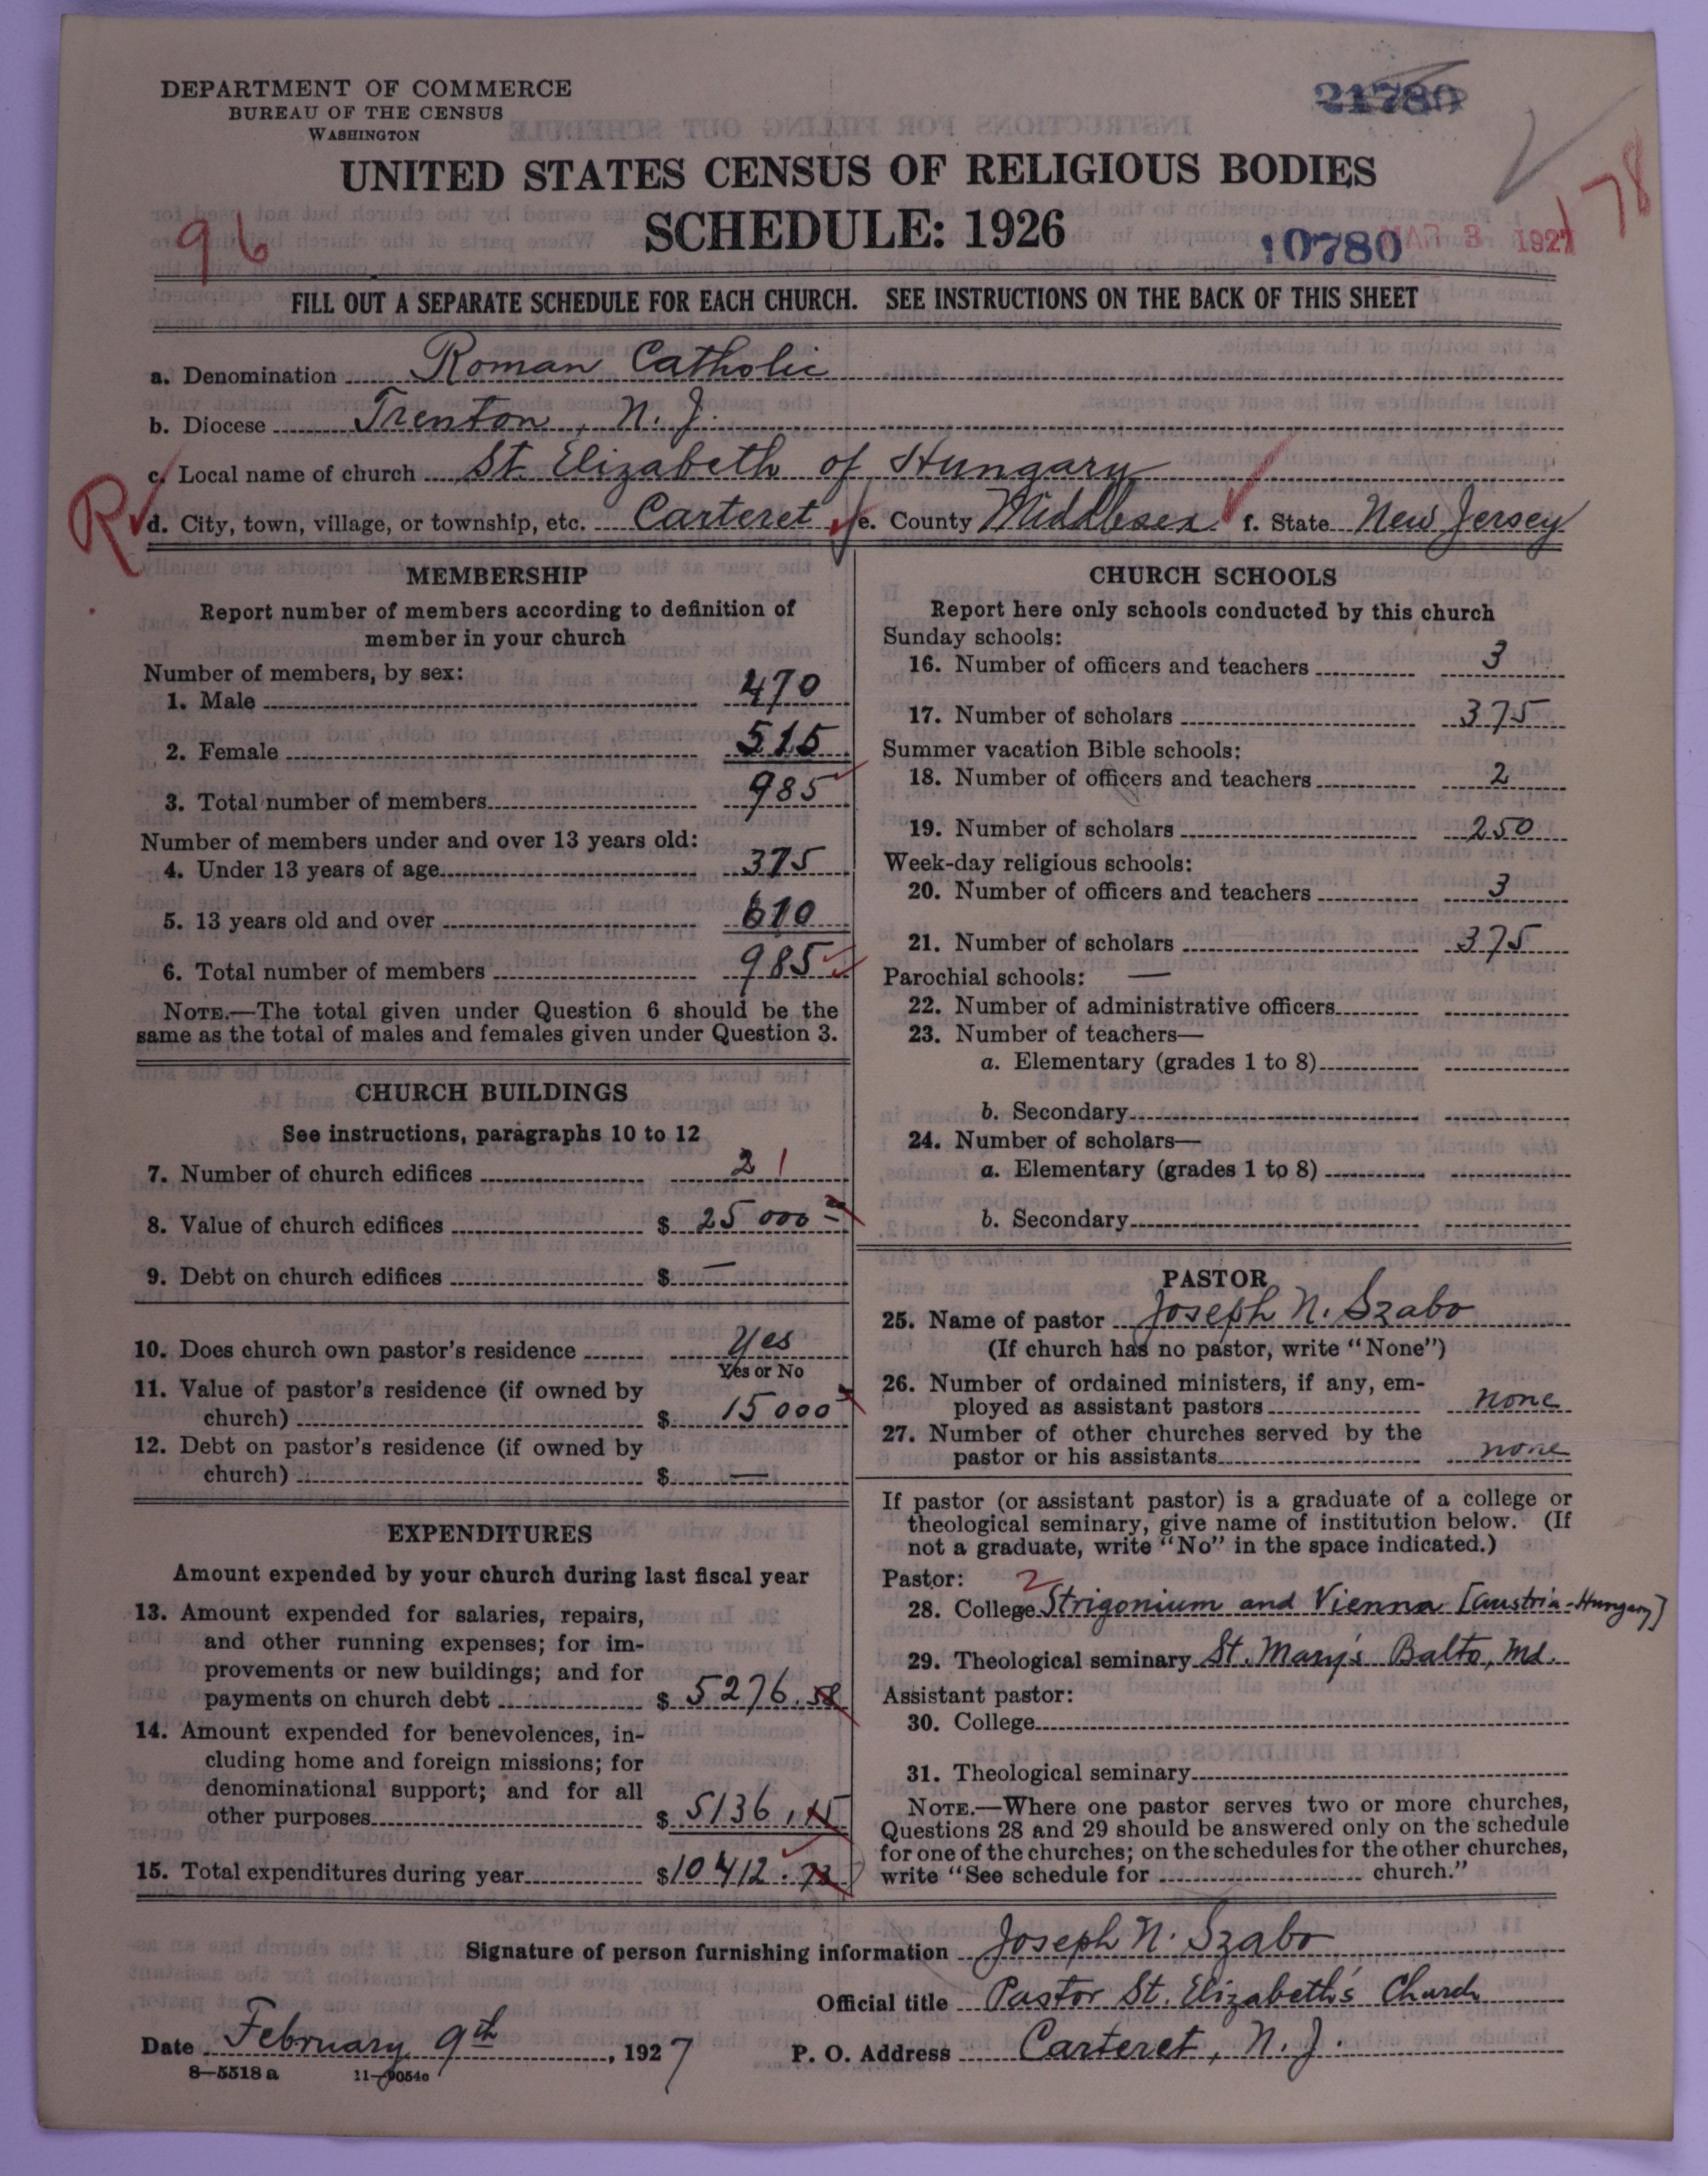 DEPARTMENT OF COMMERCE
BUREAU OF THE CENSUS
WASHINGTON
21780
UNITED STATES CENSUS OF RELIGIOUS BODIES
SCHEDULE: 1926
96
10780
MAR 3 1927
178
FILL OUT A SEPARATE SCHEDULE FOR EACH CHURCH. SEE INSTRUCTIONS ON THE BACK OF THIS SHEET
a. Denomination Roman Catholic
b. Diocese Trenton, N. J.
c. Local name of church St. Elizabeth of Hungary
R
d. City, town, village, or township, etc. Carteret e. County Middlesex f. State New Jersey
MEMBERSHIP
Report number of members according to definition of
member in your church
Number of members, by sex:
1. Male 470
2. Female 515
3. Total number of members 985
Number of members under and over 13 years old:
4. Under 13 years of age 375
5. 13 years old and over 610
6. Total number of members 985
NOTE.—The total given under Question 6 should be the
same as the total of males and females given under Question 3.
CHURCH BUILDINGS
See instructions, paragraphs 10 to 12
7. Number of church edifices 2 1
8. Value of church edifices $ 25 000 –
9. Debt on church edifices $ —
10. Does church own pastor's residence Yes
Yes or No
11. Value of pastor's residence (if owned by
church) $ 15 000
12. Debt on pastor's residence (if owned by
church) $ —
EXPENDITURES
Amount expended by your church during last fiscal year
13. Amount expended for salaries, repairs,
and other running expenses; for im-
provements or new buildings; and for
payments on church debt $ 5276.58
14. Amount expended for benevolences, in-
cluding home and foreign missions; for
denominational support; and for all
other purposes $ 5136.15
15. Total expenditures during year $10412.73
CHURCH SCHOOLS
Report here only schools conducted by this church
Sunday schools:
16. Number of officers and teachers 3
17. Number of scholars 375
Summer vacation Bible schools:
18. Number of officers and teachers 2
19. Number of scholars 250
Week-day religious schools:
20. Number of officers and teachers 3
21. Number of scholars 375
Parochial schools: —
22. Number of administrative officers
23. Number of teachers—
a. Elementary (grades 1 to 8)
b. Secondary
24. Number of scholars—
a. Elementary (grades 1 to 8)
b. Secondary
PASTOR
25. Name of pastor Joseph N. Szabo
(If church has no pastor, write "None")
26. Number of ordained ministers, if any, em-
ployed as assistant pastors none
27. Number of other churches served by the
pastor or his assistants none
If pastor (or assistant pastor) is a graduate of a college or
theological seminary, give name of institution below. (If
not a graduate, write "No" in the space indicated.)
Pastor: 2
28. College Strigonium and Vienna [Austria-Hungary]
29. Theological seminary St. Mary's Balto, Md.
Assistant pastor:
30. College
31. Theological seminary
NOTE.—Where one pastor serves two or more churches,
Questions 28 and 29 should be answered only on the schedule
for one of the churches; on the schedules for the other churches,
write "See schedule for church."
Signature of person furnishing information Joseph N. Szabo
Official title Pastor St. Elizabeth's Church
Date February 9th, 1927 P. O. Address Carteret, N. J.
8—5518 a 11—9054c